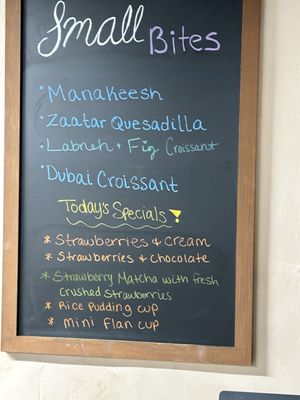 Small Bites
• Manakeesh
• Zaatar Quesadilla
• Labneh + Fig Croissant
• Dubai Croissant
Today's Specials!
* Strawberries & Cream
* Strawberries & Chocolate
* Strawberry Matcha with fresh
crushed strawberries
* Rice Pudding cup
* mini Flan cup